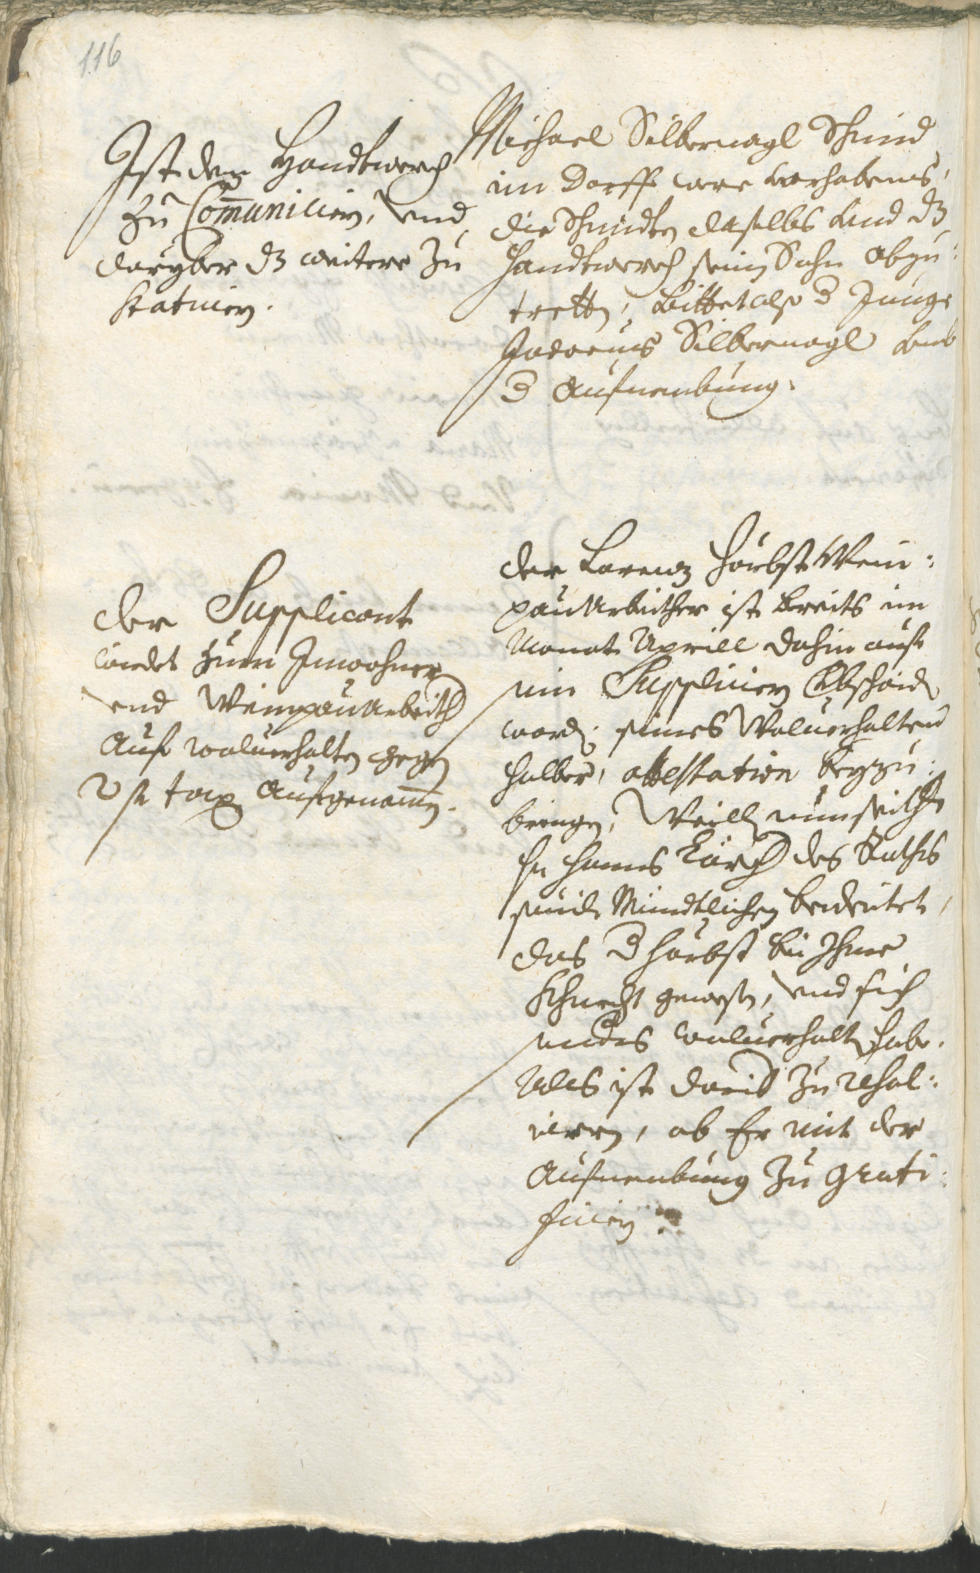 116
Ist dem Handtwerch
zu Com̅uniciern, vnd
darÿber dz weitere zu
statuiern.
Michael Silbernagl Schmid
im Dorff were vorhabens,
die Schmidten daselbs vnd dz
Handtwerch seim Sohn abzu:
tretten, Bittet also d Junge
Silbernagl vmb
d Aufnembung.
der Supplicant
wirdet zum Inwohner
vnd Weinpauarbeither
auf wolverhalten gegen
tax aufgenom̅en.
der Lorenz Hörbst Wein:
pauarbeither ist bereits im
Monat Aprill dahin auf
sein Suppliciern Abschaidt
word. seines Wolverhaltens
halber, attestation beyzu:
bringen, Weilln nun seith
hr Hanns des Raths
Mündtlichen bedeütet,
das d Hörbst bei Ihme
Khnecht gewesen, vnd sich
wolverhalten habe.
Als ist darüb zu resol:
viern, ob Er mit der
Aufnembung zu grati:
ficiern